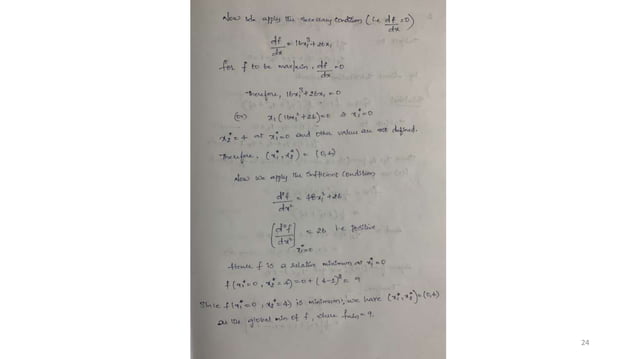 Now we apply the necessary condition (i.e df/dx = 0)
df/dx = 16x₁³ + 26x₁
for f to be max/min. df/dx = 0
Therefore, 16x₁³ + 26x₁ = 0
(or) x₁(16x₁² + 26) = 0 ⇒ x₁* = 0
x₂* = 4 at x₁* = 0 and other values are not defined.
Therefore, (x₁*, x₂*) = (0,4)
Now we apply the sufficient condition
d²f/dx² = 48x₁² + 26
[d²f/dx²]x₁*=0 = 26 i.e positive
Hence f is a relative minimum at x₁* = 0
f(x₁* = 0, x₂* = 4) = 0 + (4-1)² = 9
Since f(x₁* = 0, x₂* = 4) is minimum, we have (x₁*, x₂*) = (0,4)
as the global min of f, where fmin = 9.
24